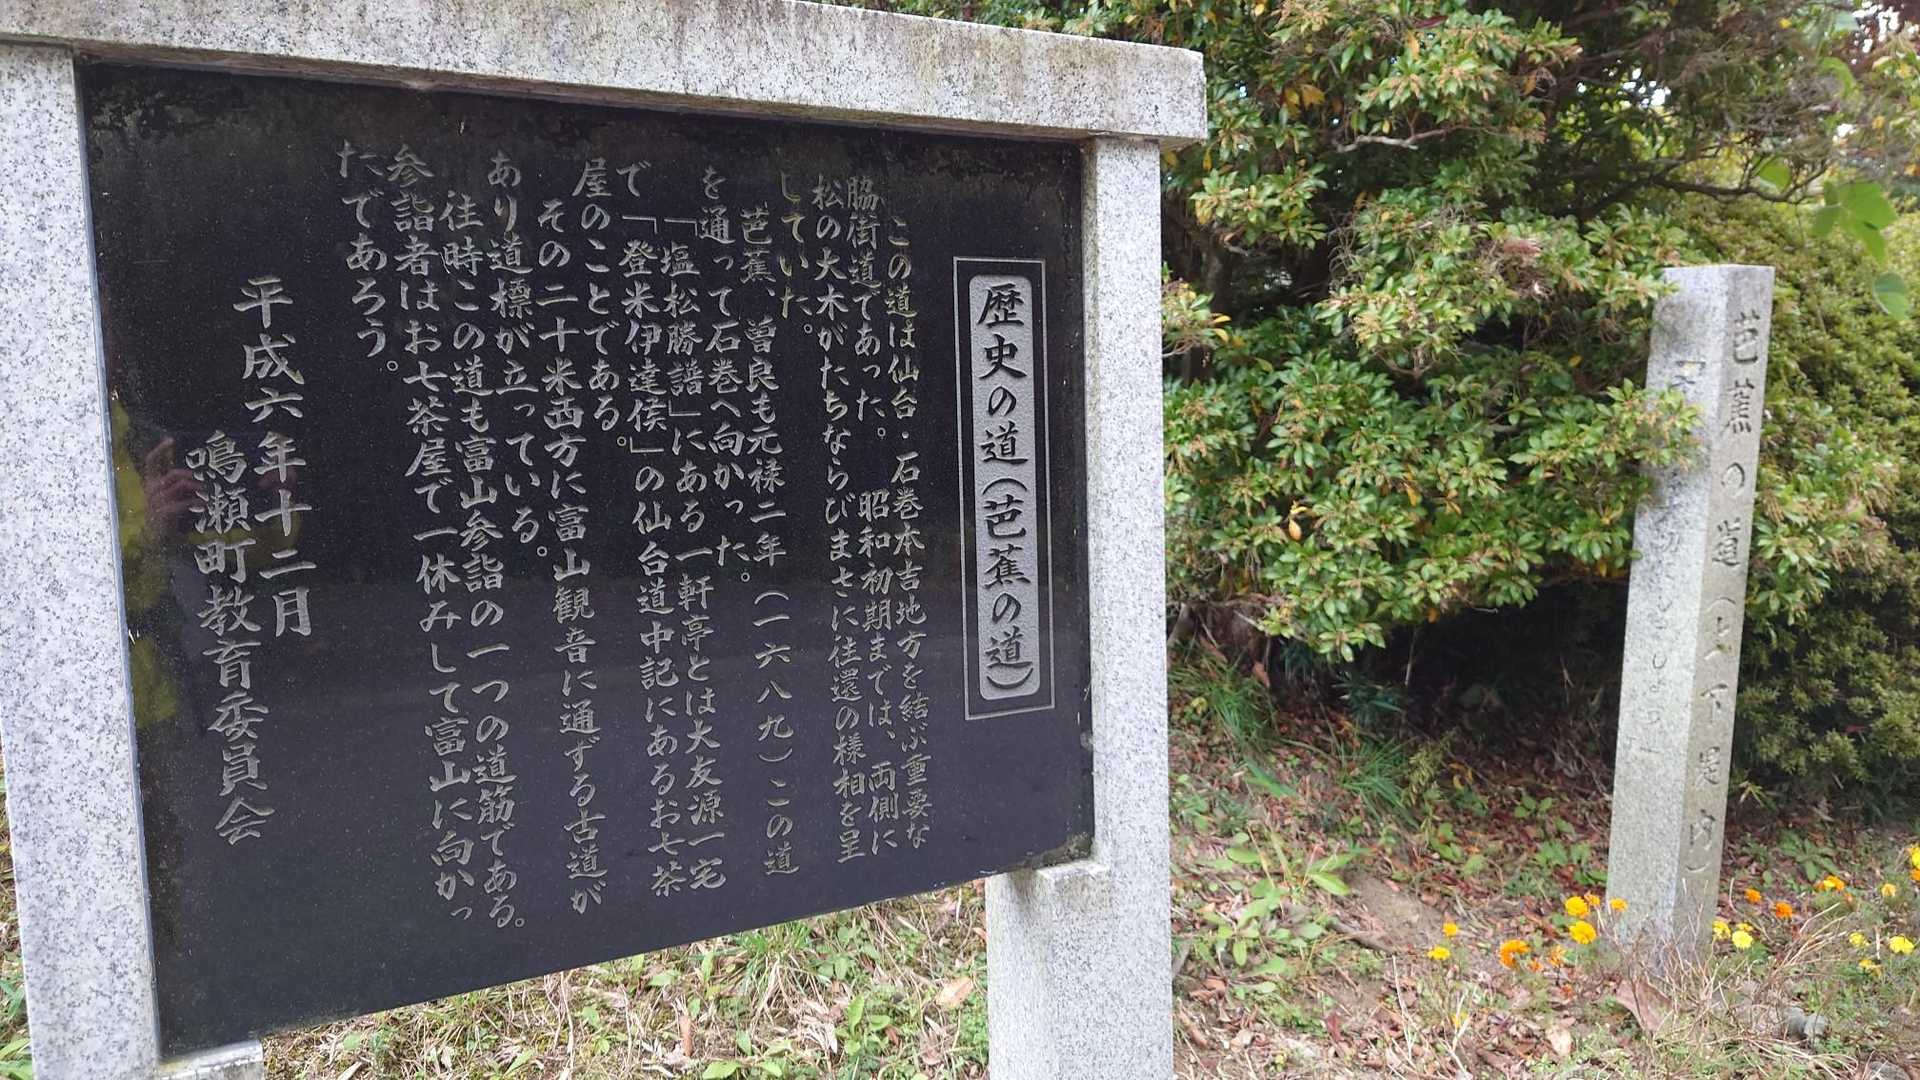 歴史の道(芭蕉の道)
この道は仙台・石巻本吉地方を結ぶ重要な
脇街道であった。昭和初期までは、両側に
松の大木がたちならびまさに往還の様相を呈
していた。
芭蕉、曽良も元禄二年(一六八九)この道
を通って石巻へ向かった。
「塩松勝譜」にある一軒亭とは大友源一宅
で「登米伊達侯」の仙台道中記にあるお七茶
屋のことである。
その二十米西方に富山観音に通ずる古道が
あり道標が立っている。
往時この道も富山参詣の一つの道筋である。
参詣者はお七茶屋で一休みして富山に向かっ
たであろう。
平成六年十二月
鳴瀬町教育委員会
芭蕉の道(上下堤内)